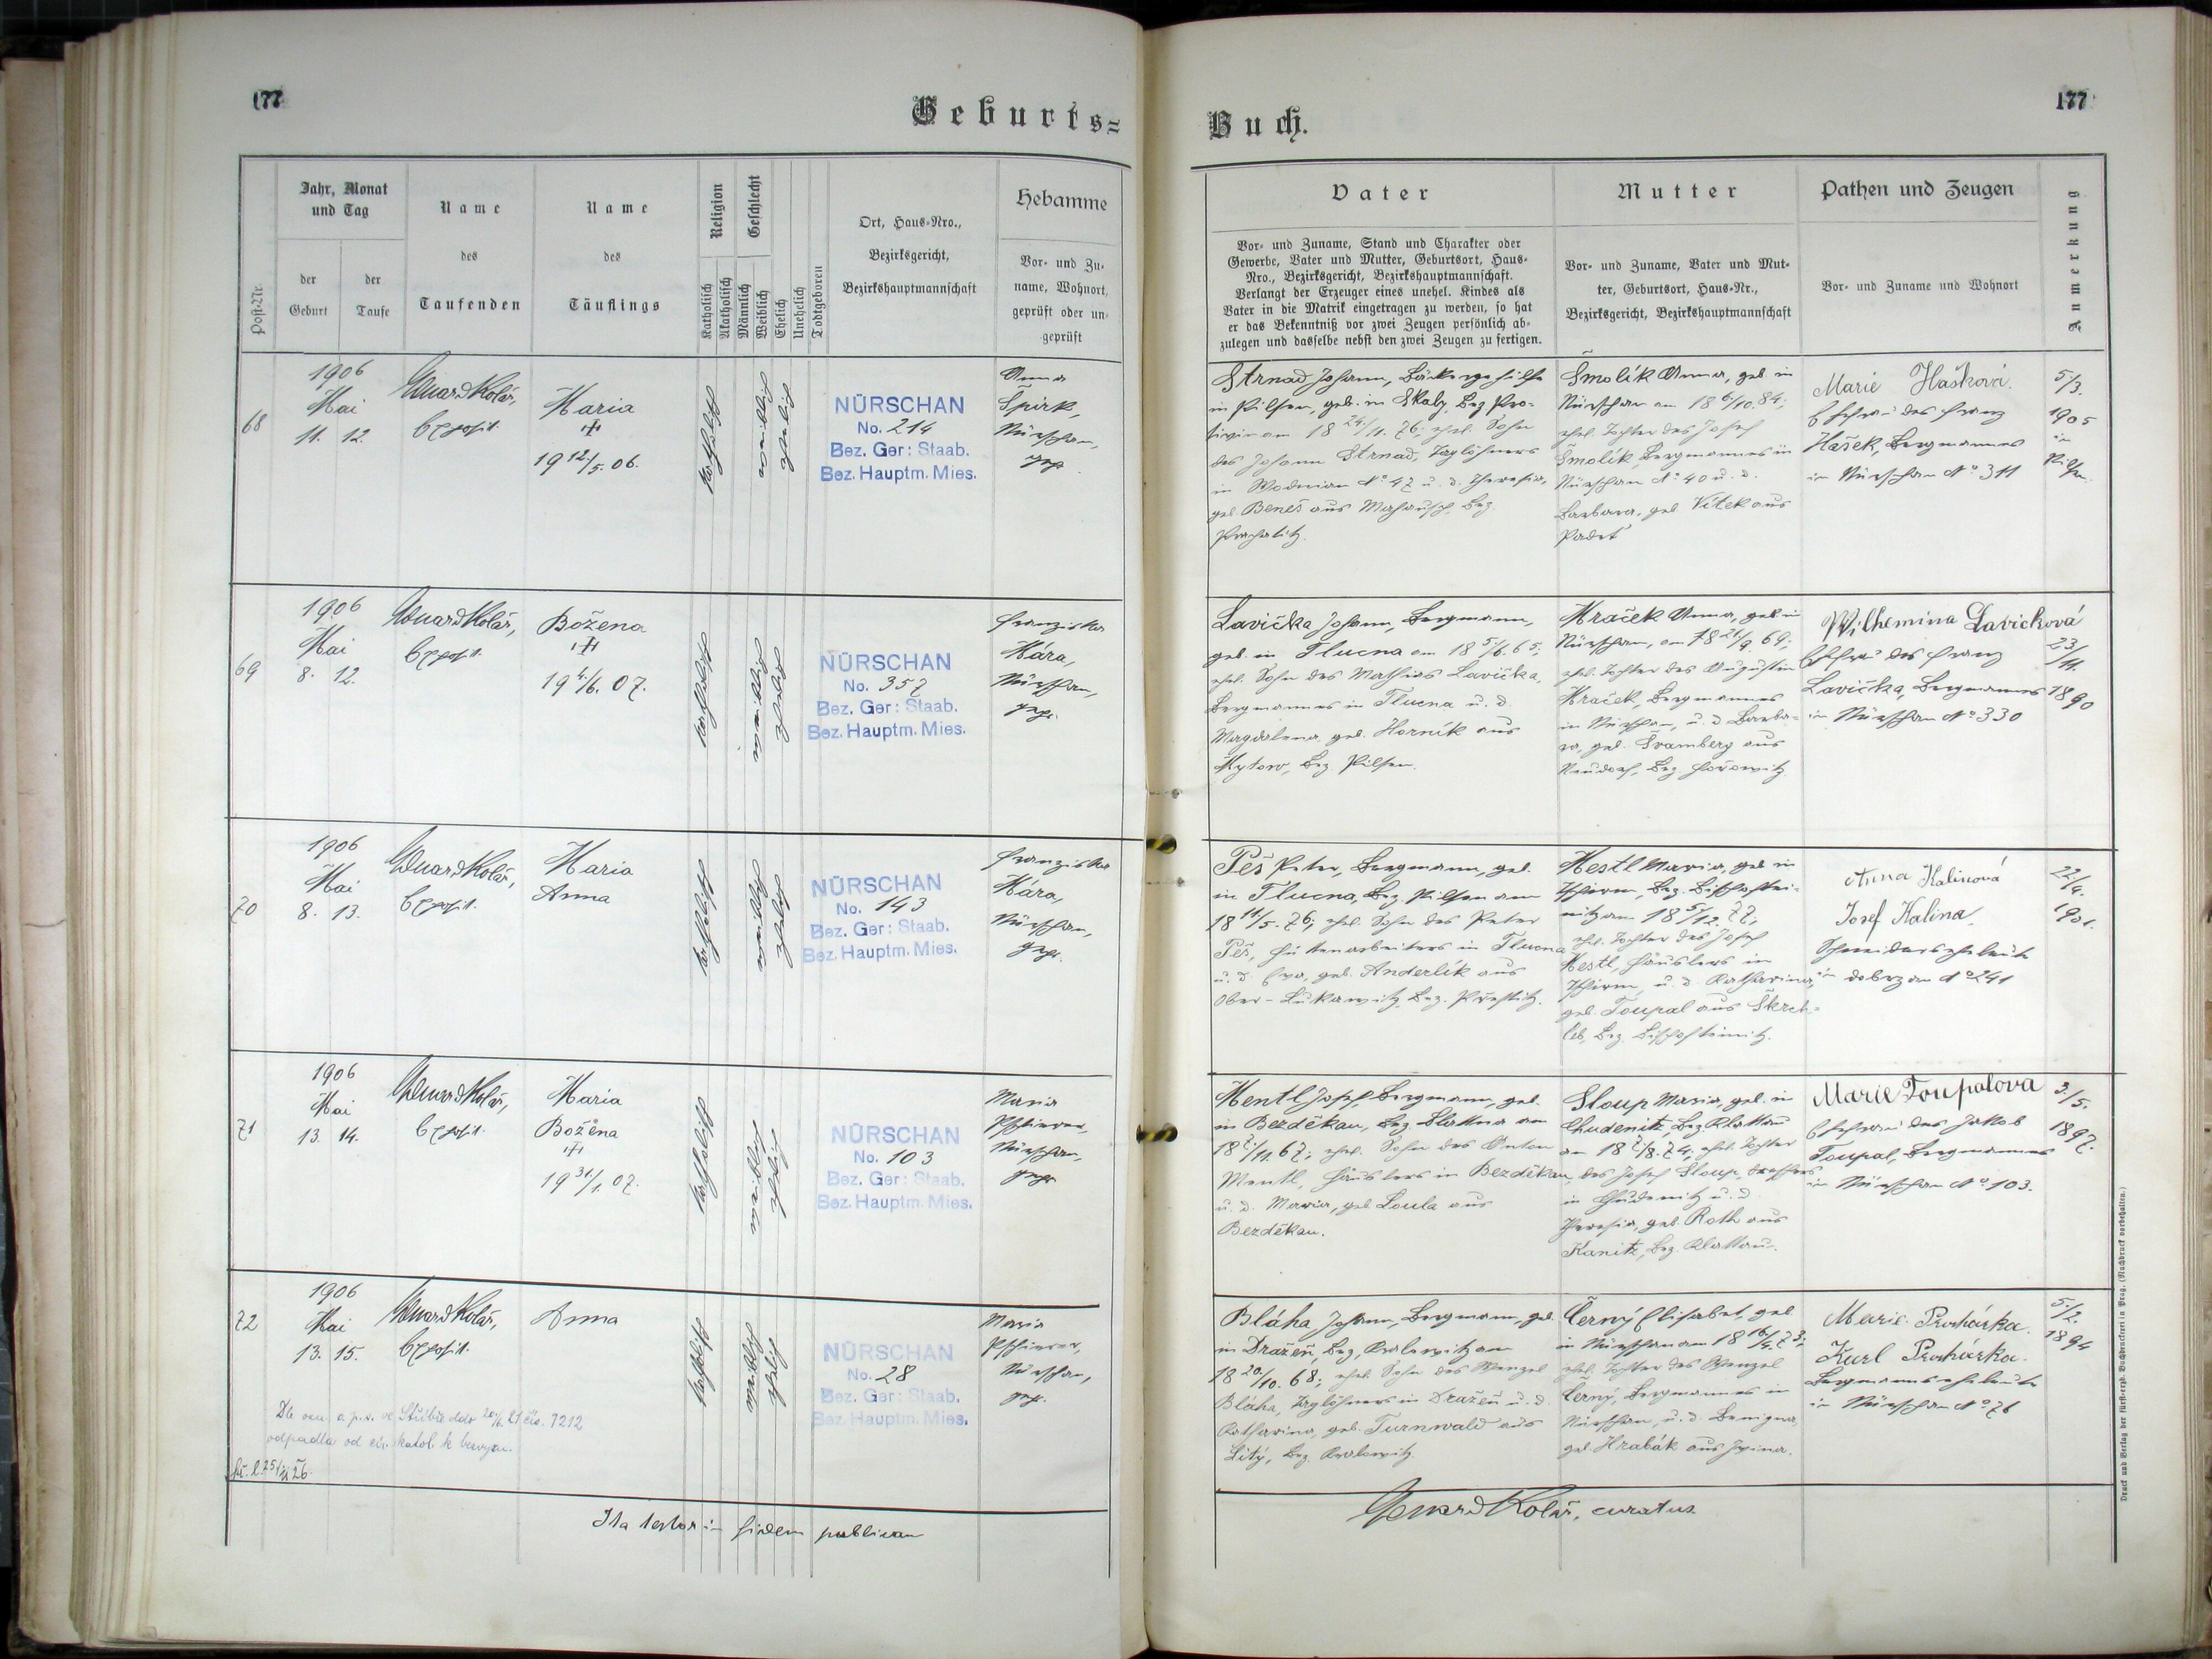 177
Geburts=
Jahr, Monat
und Tag
der
Geburt
der
Taufe
Post-Nr.
Name
des
Taufenden
Name
des
Täuflings
Religion
Katholisch
Akatholisch
Geschlecht
Männlich
Weiblich
Ehelich
Unehelich
Todtgeboren
Ort, Haus-Nro.,
Bezirksgericht,
Bezirkshauptmannschaft
Hebamme
Vor- und Zu-
name, Wohnort,
geprüft oder un-
geprüft
68
1906
Mai
11. 12.
Eduard Kolář,
Exposit.
Maria
19 12/5. 06.
katholisch
weiblich
ehelich
NÜRSCHAN
No. 214
Bez. Ger: Staab.
Bez. Hauptm. Mies.
Anna
Špirk,
Nürschan,
gepr.
69
1906
Mai
8. 12.
Eduard Kolář,
Exposit.
Božena
19 4/6. 07.
katholisch
weiblich
ehelich
NÜRSCHAN
No. 357
Bez. Ger: Staab.
Bez. Hauptm. Mies.
Franziska
Mára,
Nürschan,
gepr.
70
1906
Mai
8. 13.
Eduard Kolář,
Exposit.
Maria
Anna
katholisch
weiblich
ehelich
NÜRSCHAN
No. 143
Bez. Ger: Staab.
Bez. Hauptm. Mies.
Franziska
Mára,
Nürschan,
gepr.
71
1906
Mai
13. 14.
Eduard Kolář,
Exposit.
Maria
Božena
19 31/1. 07.
katholisch
weiblich
ehelich
NÜRSCHAN
No. 103
Bez. Ger: Staab.
Bez. Hauptm. Mies.
Maria
Pschierer,
Nürschan,
gepr.
72
1906
Mai
13. 15.
Eduard Kolář,
Exposit.
Anna
katholisch
weiblich
ehelich
NÜRSCHAN
No. 28
Bez. Ger: Staab.
Bez. Hauptm. Mies.
Maria
Pschierer,
Nürschan,
gepr.
Dle ozn. o. p. s. ve Stříbře ddo 20/6. 21 čís. 7212
odpadla od cír. katol. k bezvyzn.
Ita testor in fidem publicam
177
Buch.
Vater
Vor- und Zuname, Stand und Charakter oder
Gewerbe, Vater und Mutter, Geburtsort, Haus-
Nro., Bezirksgericht, Bezirkshauptmannschaft.
Verlangt der Erzeuger eines unehel. Kindes als
Vater in die Matrik eingetragen zu werden, so hat
er das Bekenntniß vor zwei Zeugen persönlich ab-
zulegen und dasselbe nebst den zwei Zeugen zu fertigen.
Mutter
Vor- und Zuname, Vater und Mut-
ter, Geburtsort, Haus-Nr.,
Bezirksgericht, Bezirkshauptmannschaft
Pathen und Zeugen
Vor- und Zuname und Wohnort
Anmerkung
Strnad Johann, Bäckergehilfe
in Pilsen, geb. in Skaly, Bez. Pro-
tiwin am 18 24/11. 76; ehel. Sohn
des Johann Strnad, Taglöhners
in Wodnian No 47 u. d. Theresia,
geb. Beneš aus Mahausch, Bez.
Prachatitz.
Smolík Anna, geb. in
Nürschan am 18 6/10. 84;
ehel. Tochter des Josef
Smolík, Bergmannes in
Nürschan No 40 u. d.
Barbara, geb. Vítek aus
Padrt
Marie Hašková.
Ehefrau des Franz
Hašek, Bergmannes
in Nürschan No 311
5/3.
1905
in
Pilsen
Lavička Johann, Bergmann,
geb. in Tlucna am 18 5/6. 65;
ehel. Sohn des Mathias Lavička,
Bergmannes in Tlucna u. d.
Magdalena geb. Hornik aus
Mytow, Bez. Pilsen.
Mraček Anna, geb. in
Nürschan, am 18 21/9. 69;
ehel. Tochter des Augustin
Mraček, Bergmannes
in Nürschan, u. d. Barba-
ra, geb. Švamberg aus
Neudorf, Bez. Hořowitz
Wilhemina Lavicková
Ehefrau des Franz
Lavička, Bergmannes
in Nürschan No 330
23/11.
1890
Peš Peter, Bergmann, geb.
in Tlucna, Bez. Pilsen am
18 11/5. 76; ehel. Sohn des Peter
Peš, Hüttenarbeiters in Tlucna
u. d. Eva, geb. Anderlík aus
Ober-Lukawitz, Bez. Přestitz.
Mestl Maria, geb. in
Bez. Bischoftei-
nitz am 18 5/12. 77;
ehel. Tochter des Josef
Mestl, Häuslers in
u. d. Katharina,
geb. Toupal aus Skrch-
leb, Bez. Bischofteinitz.
Anna Kalinová
Josef Kalina
Schneiderseheleute
in Dobrzan No 241
22/4.
1901.
Mentl Josef, Bergmann, geb.
in Bezděkau, Bez. Blattna am
18 7/11. 67; ehel. Sohn des Anton
Mentl, Häuslers in Bezděkau
u. d. Maria, geb. Loula aus
Bezděkau.
Sloup Maria, geb. in
Chudenitz, Bez. Klattau
am 18 7/8. 74; ehel. Tochter
des Josef Sloup,
in Chudenitz u. d.
Theresia, geb. Roth aus
Kanitz, Bez. Klattau.
Marie Toupalova
Ehefrau des Jakob
Toupal, Bergmannes
in Nürschan No 103.
3/5.
1897.
Bláha Johann, Bergmann, geb.
in Dražeň, Bez. Kralowitz am
18 20/10. 68; ehel. Sohn des Wenzel
Bláha, Taglöhners in Dražeň u. d.
Katharina, geb. Turnwald aus
Lítý, Bez. Kralowitz.
Černý Elisabet, geb.
in Nürschan am 18 16/4. 73;
ehel. Tochter des Wenzel
Černý, Bergmannes in
Nürschan, u. d. Benigna,
geb. Hrabák aus
Marie Procházka.
Karl Procházka.
Bergmannseheleute
in Nürschan No 76
5/2.
1894
Eduard Kolář, curatus
Druck und Verlag der fürsterzb. Buchdruckerei in Prag. (Nachdruck vorbehalten.)